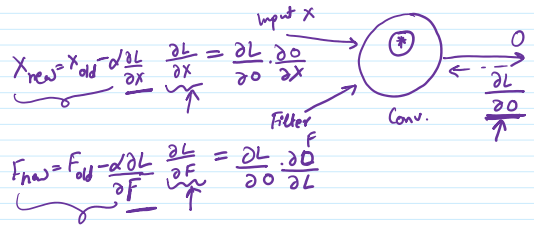 Input X
X_new = X_old - α ∂L/∂X   ∂L/∂X = ∂L/∂O . ∂O/∂X
*
O
∂L/∂O
Filter
Conv.
F
F_new = F_old - α ∂L/∂F   ∂L/∂F = ∂L/∂O . ∂O/∂L